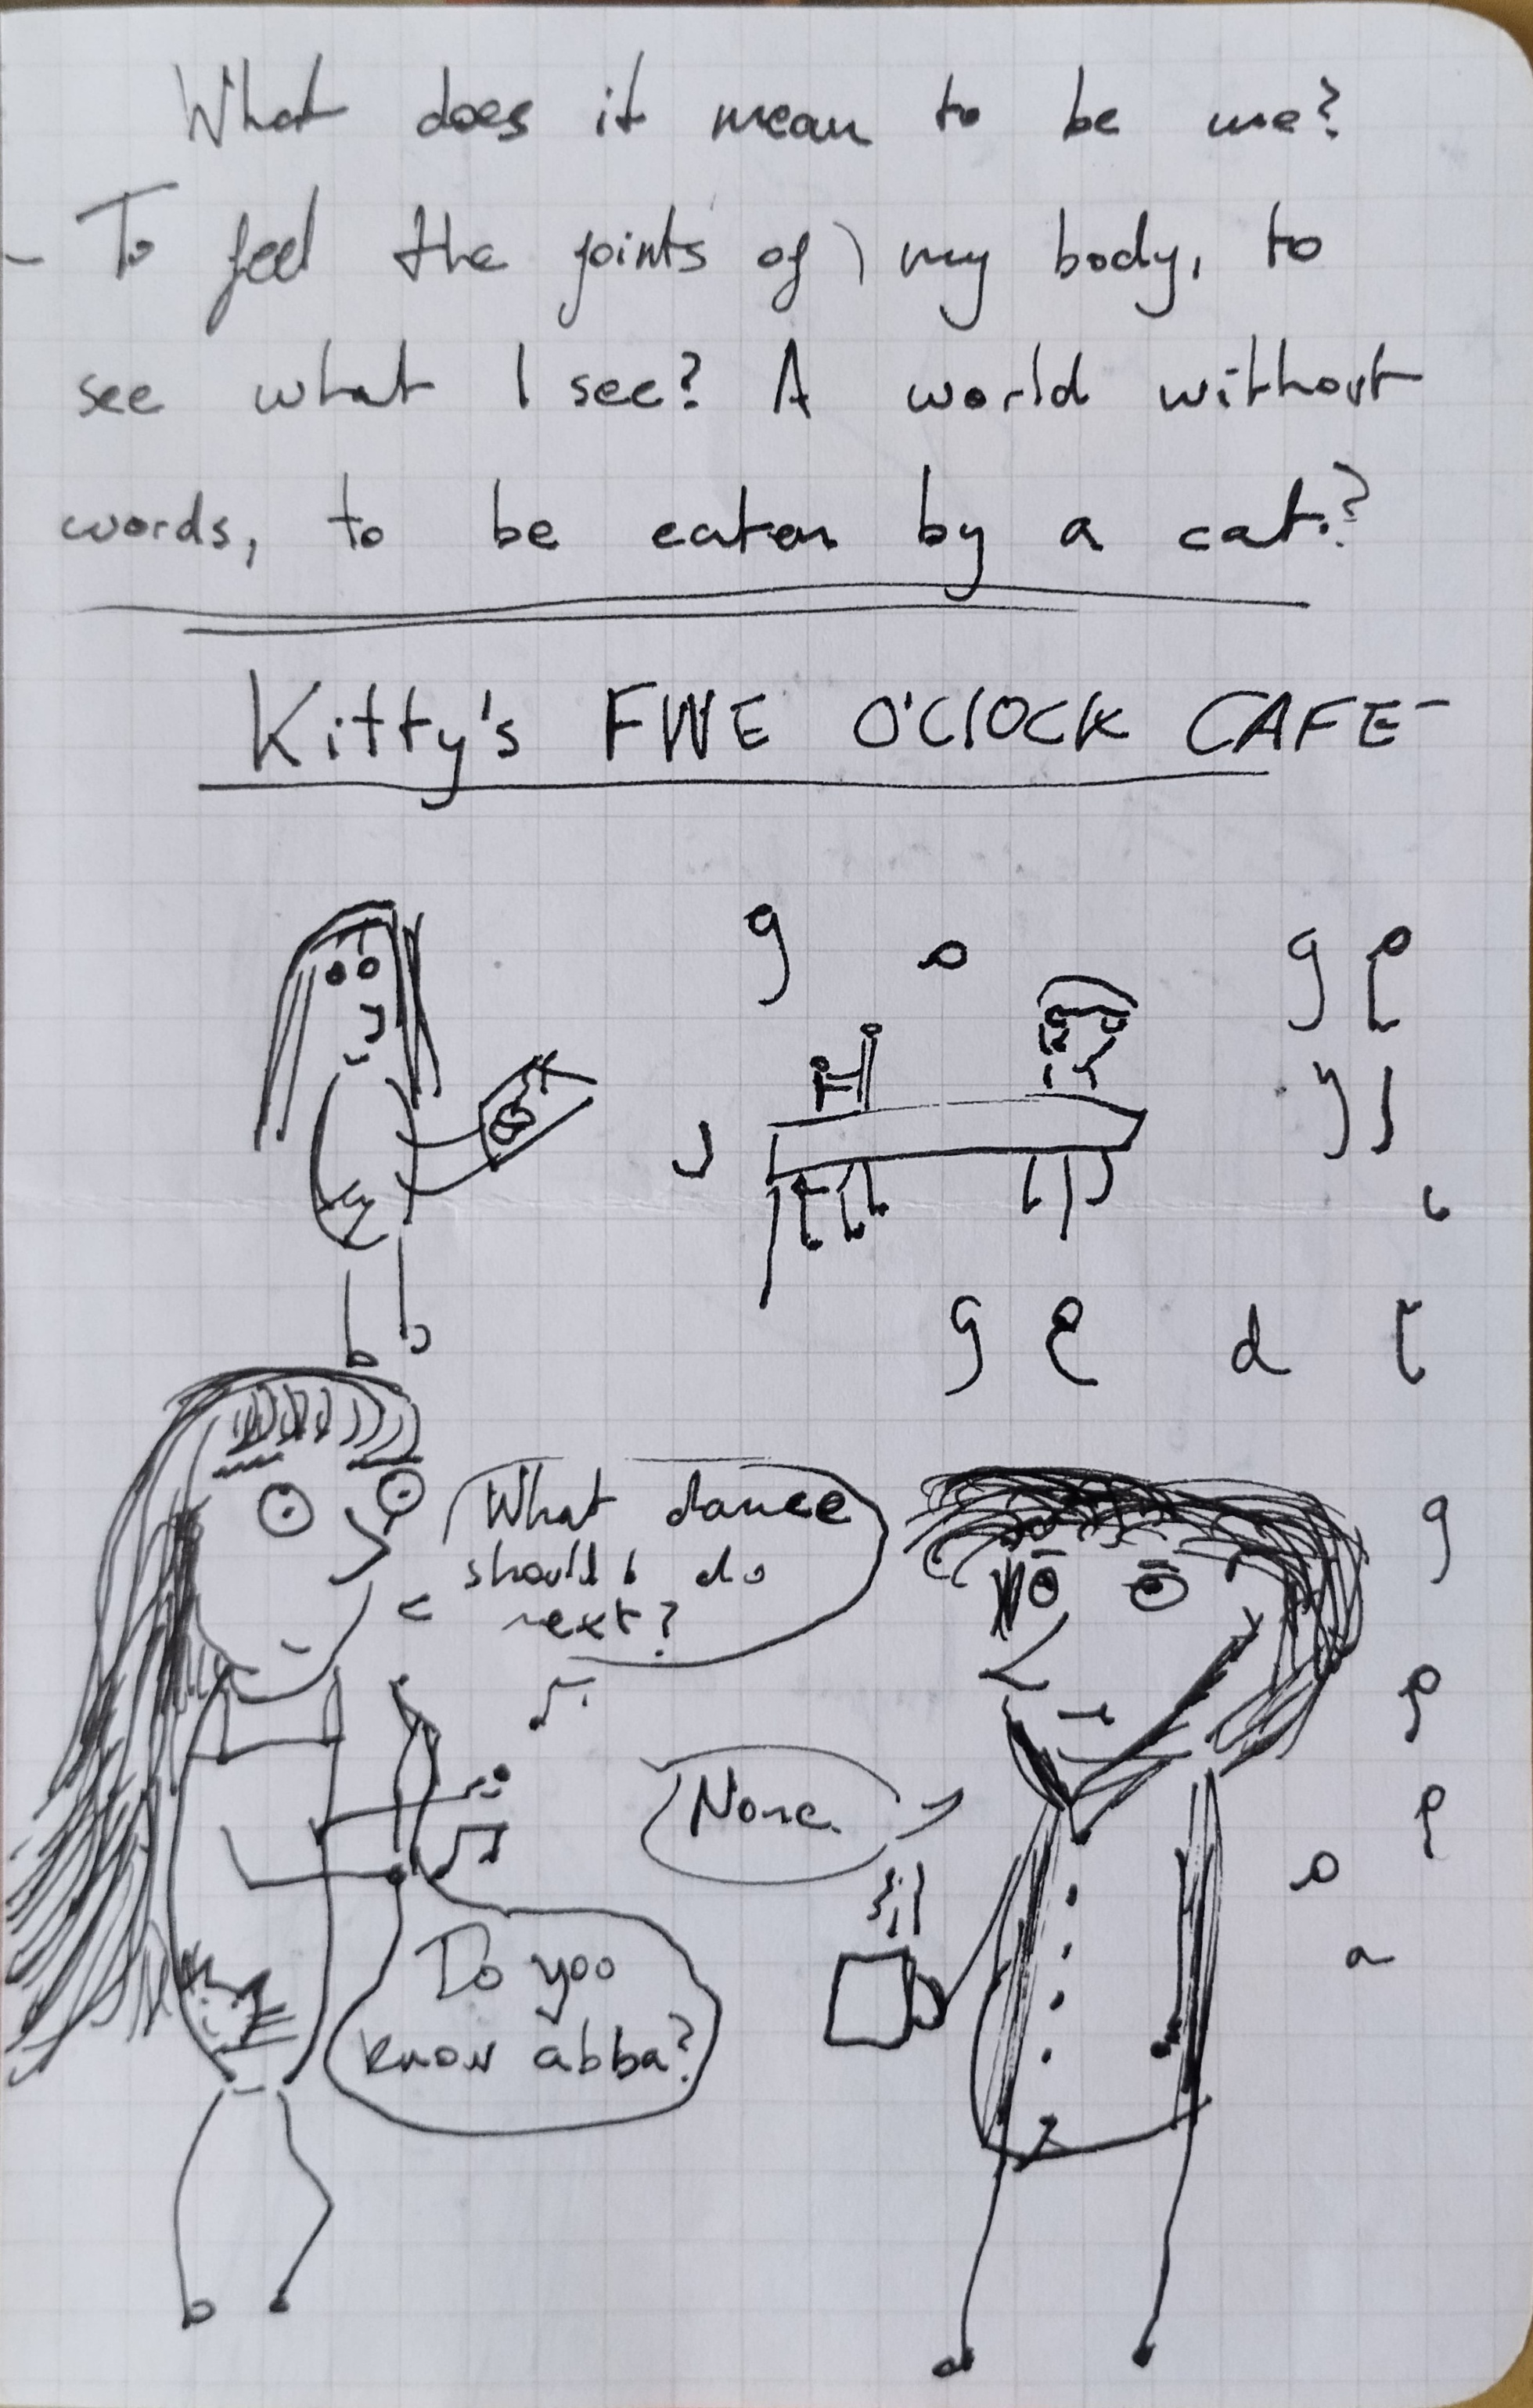 What does it mean to be me?
- To feel the joints of my body, to
see what I see? A world without
words, to be eaten by a cat.?
Kitty's FIVE O'ClOCK CAFE
What dance
should I do
next?
None.
Do you
know abba?